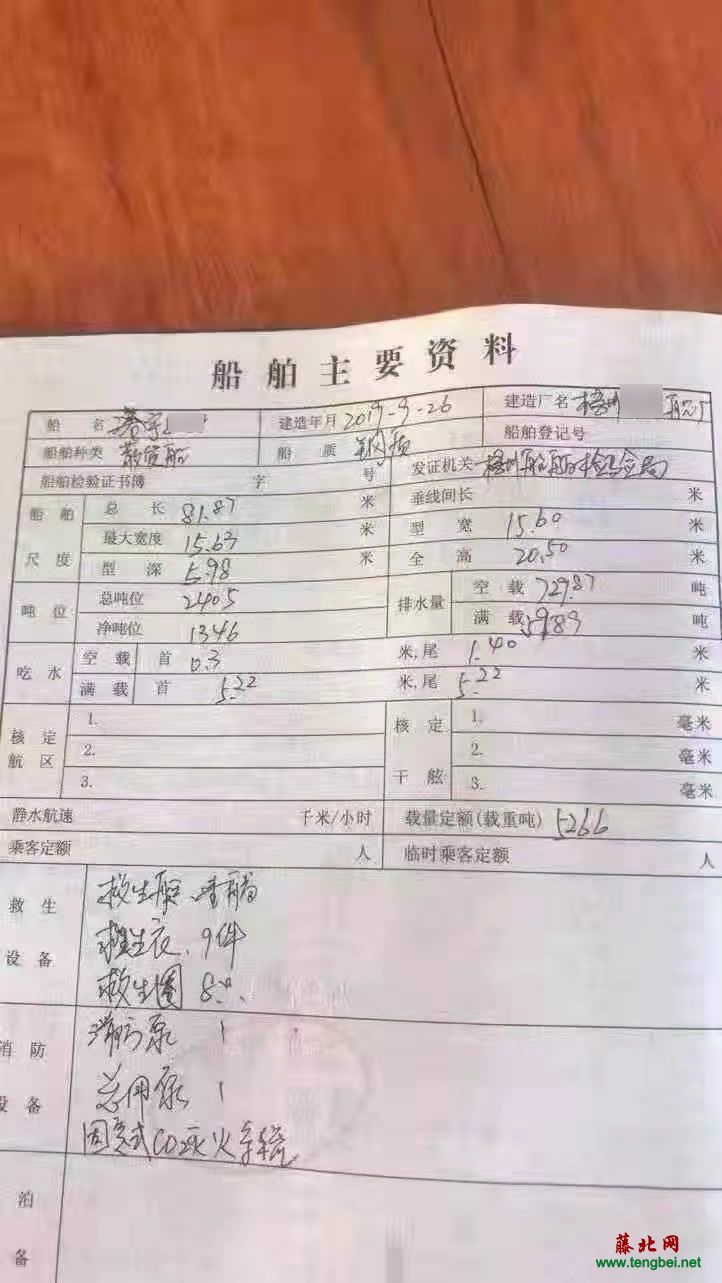 船舶主要资料
船名 建造年月 2019-9-26 建造厂名 梧州 船厂
船舶种类 散货船 船质 钢质 船舶登记号
船舶检验证书簿 字 号 发证机关 梧州船舶检验局
船舶尺度 总长 81.87 米 垂线间长 米
最大宽度 15.63 米 型宽 15.60 米
型深 5.98 米 全高 20.50 米
吨位 总吨位 2405 排水量 空载 729.87 吨
净吨位 1346 满载 吨
吃水 空载 首 0.3 米,尾 1.40 米
满载 首 5.22 米,尾 5.22 米
核定航区 1. 核定干舷 1. 毫米
2. 2. 毫米
3. 3. 毫米
静水航速 千米/小时 载量定额(载重吨) 5266
乘客定额 人 临时乘客定额 人
救生设备 救生艇
救生衣 9件
救生圈 8
消防设备 消防泵 1
总用泵 1
固定式CO2灭火系统
泊
备
藤北网
www.tengbei.net